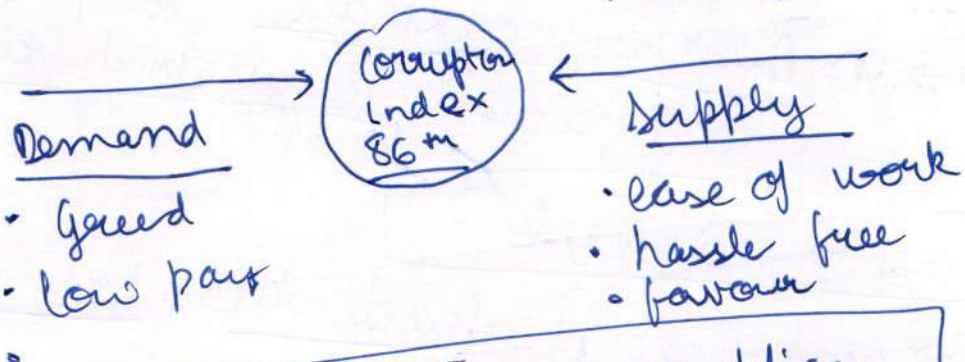 Corruption
Index
86th
Demand
• Greed
• low pay
Supply
• ease of work
• hassle free
• favour